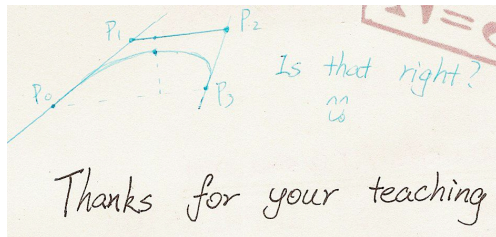 P₁
P₂
P₀
P₃
Is that right?
Thanks for your teaching